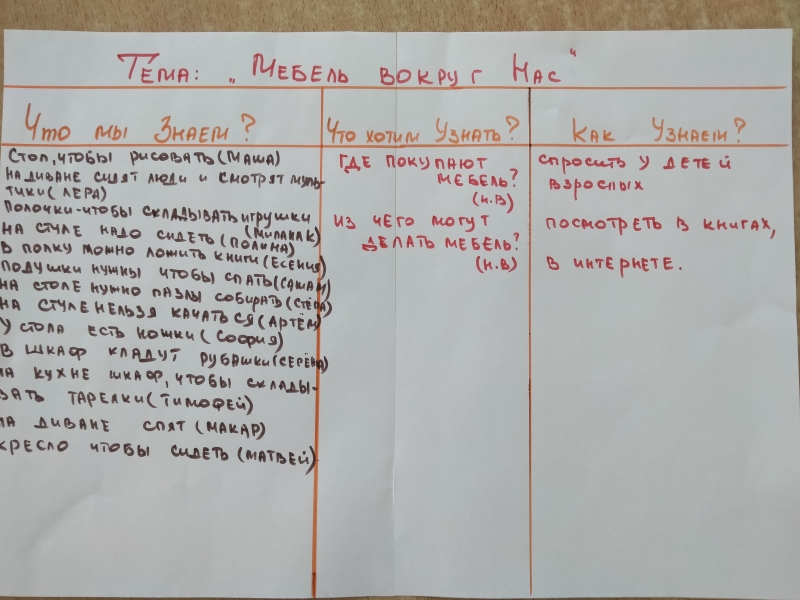 Тема: „Мебель вокруг Нас"
Что мы Знаем?
Стол, чтобы рисовать (Маша)
на диване сидят люди и смотрят муль-
тики (Лера)
Полочки-чтобы складывать игрушки
(Милана К)
на стуле надо сидеть (Полина)
в полку можно ложить книги (Есения)
Подушки нужны чтобы спать (Саша М)
на столе нужно пазлы собирать (Стёпа)
на стуле нельзя качаться (Артём)
у стола есть ножки (София)
в шкаф кладут рубашки (Серёжа)
на кухне шкаф, чтобы склады-
вать тарелки (Тимофей)
на диване спят (Макар)
кресло чтобы сидеть (Матвей)
Что хотим Узнать?
Где покупают
мебель?
(Н.В)
Из чего могут
делать мебель?
(Н.В)
Как Узнаем?
спросить у детей
взрослых
посмотреть в книгах,
в интернете.